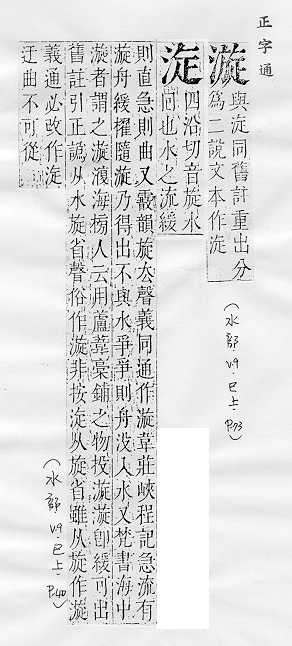 正字通
漩
與㳬同舊註重出分
爲二說文本作㳬
(水部 V9.巳上.P.73)
㳬
四沿切音旋水
回也水之流緩
則直急則曲又霰韻旋去聲義同通作漩韋莊峽程記急流有
漩舟緩擢隨漩乃得出不與水爭爭則舟没入水又梵書海中
漩者謂之漩澓海榜人云用蘆葦稾鋪之物投漩漩卽緩可出
舊註引正譌从水旋省聲俗作漩非按㳬从旋省雖从旋作漩
義通必改作㳬
迂曲不可從
(水部 V9.巳上.P.40)